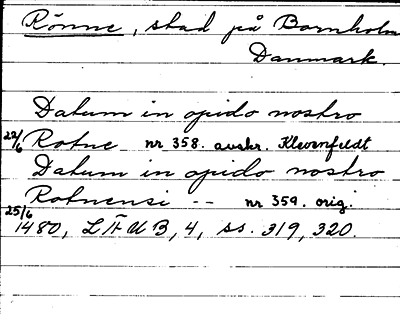 Rönne, stad på Bornholm
Danmark.
Datum in opido nostro
22/6 Rotne nr 358. avskr. Klevenfeldt
Datum in opido nostro
Rotnensi -- nr 359. orig.
25/6 1480, LÄUB, 4, ss. 319, 320.